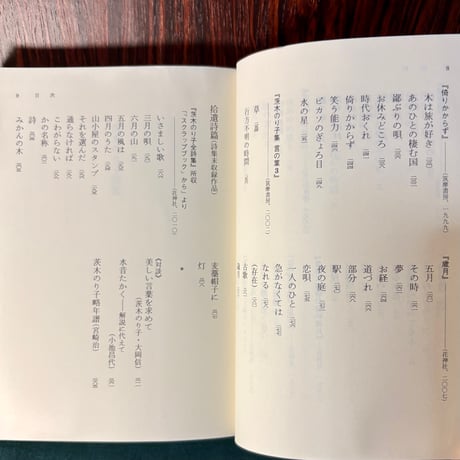 8
『倚りかからず』
(筑摩書房、一九九九)
木は旅が好き
あのひとの棲む国
鄙ぶりの唄
お休みどころ
時代おくれ
倚りかからず
笑う能力
ピカソのぎょろ目
水の星
『茨木のり子集 言の葉3』
(筑摩書房、二〇〇二)
草
行方不明の時間
『歳月』
(花神社、二〇〇七)
五月
その時
夢
お経
道づれ
部分
駅
夜の庭
恋唄
一人のひと
急がなくては
なれる
(存在)
古歌
歳月
拾遺詩篇(詩集未収録作品)
『茨木のり子全詩集』所収
「「スクラップブック」から」より
(花神社、二〇一〇)
いさましい歌
三月の唄
六月の山
五月の風は
四月のうた
山小屋のスタンプ
それを選んだ
通らなければ
こわがらない
かの名称
詩
みかんの木
9 目次
支藁帽子に
灯
*
《対談》
美しい言葉を求めて
(茨木のり子・大岡信)
水音たかく——解説に代えて
(小池昌代)
茨木のり子略年譜(宮崎治)